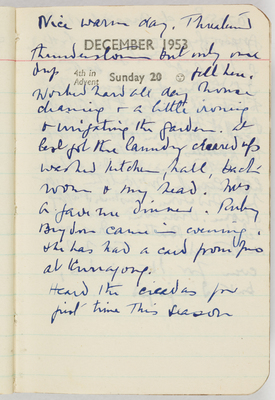 Nice warm day. Threatened
thunderstorm but only one
DECEMBER 1953
drop fell here.
4th in Advent
Sunday 20
Worked hard all day house
cleaning & a little ironing
& irrigating the garden. At
last got the laundry cleared up
washed kitchen, hall, back
room & my head. Mrs
a gave me dinner. Ruby
Brydon came in evening.
She has had a card from
at Kurrajong.
Heard the cicadas for
first time this season